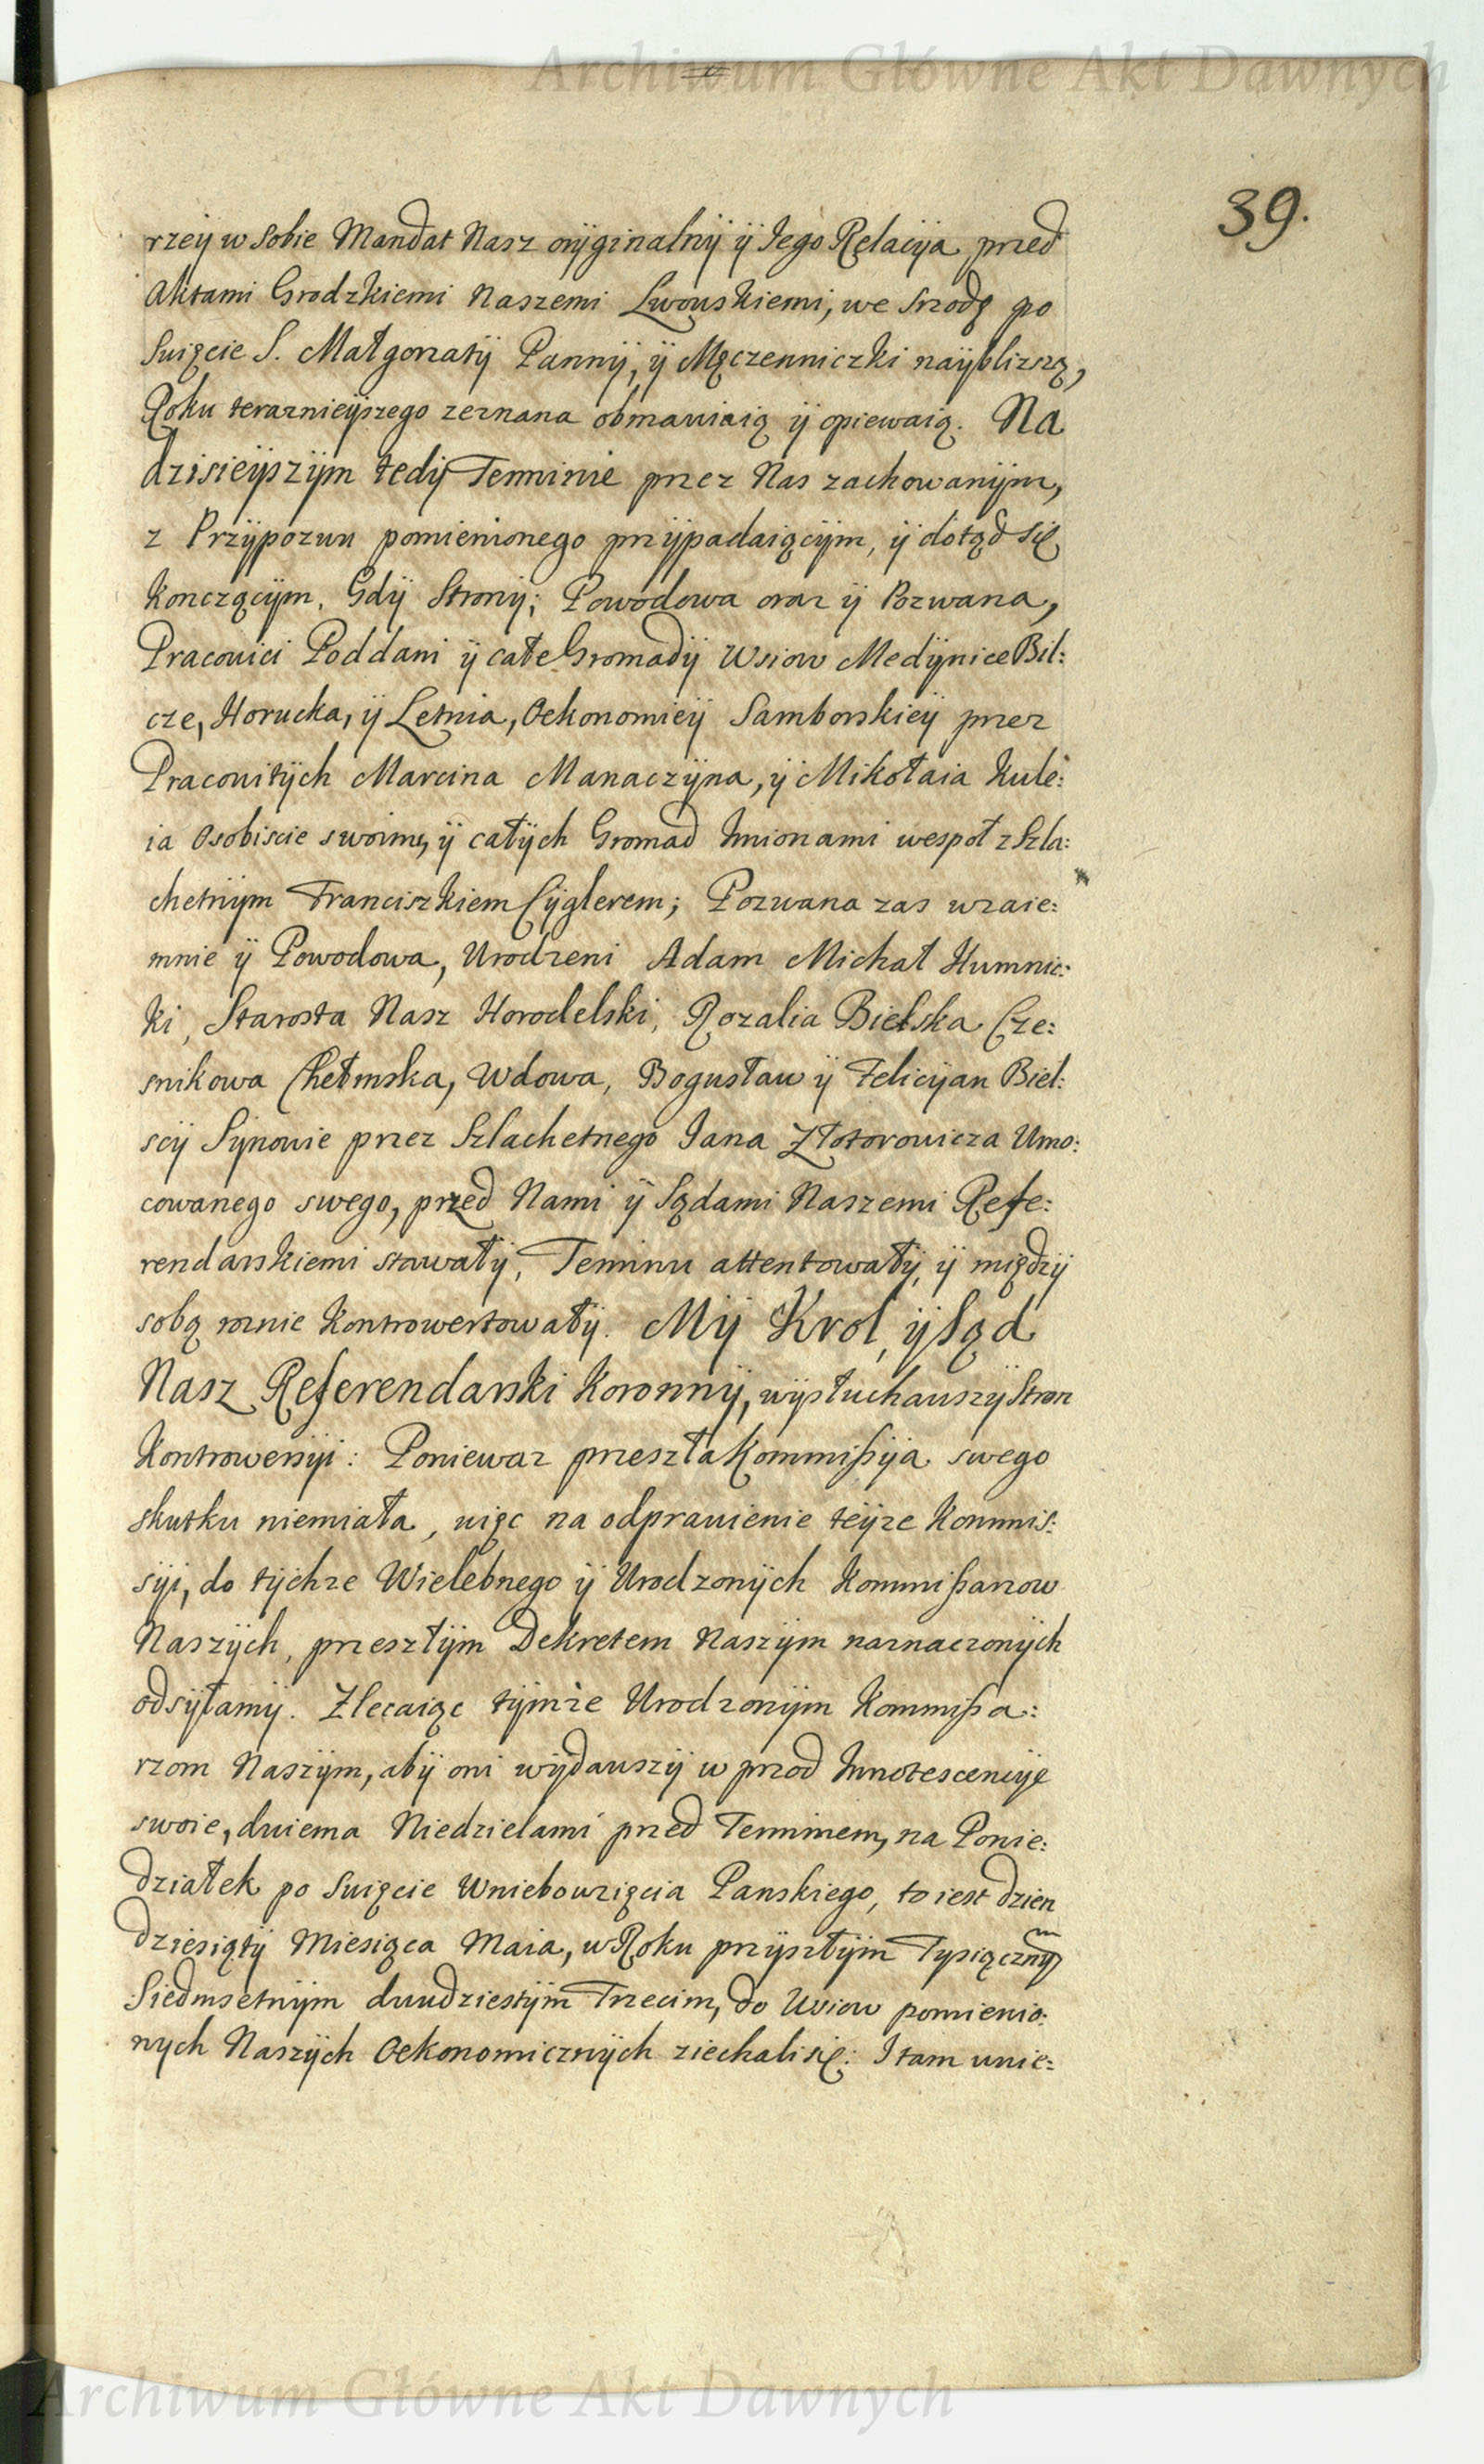 Archiwum Główne Akt Dawnych
39.
rzeÿ w Sobie Mandat Nasz orÿginalnÿ ÿ Jego Relacÿa przed
Aktami Grodzkiemi Naszemi Lwowskiemi, we Srzodę po
Swięcie S. Małgorzatÿ Pannÿ, ÿ Męczenniczki naÿblizszą,
Roku terazniejszego zeznana obmawiaią ÿ opiewaią. Na
dzisieÿszÿm tedÿ Terminie przez Nas zachowanÿm,
z Przÿpozwu pomienionego przÿpadaiącÿm, ÿ dotąd się
Konczącÿm. Gdÿ Stronÿ; Powodowa oraz ÿ Pozwana,
Pracowici Poddani ÿ całe Gromadÿ Wsiow Medÿnice Bil:
cze, Horucka, ÿ Letnia, Oekonomieÿ Samborskieÿ przez
Pracowitÿch Marcina Manaczÿna, ÿ Mikołaia Kule:
ia Osobiscie swoim, ÿ całÿch Gromad Imionami wespoł z Szla:
chetnÿm Franciszkiem Cÿglerem; Pozwana zas wzaie:
mnie ÿ Powodowa, Urodzeni Adam Michał Humnic:
ki, Starosta Nasz Horodelski, Rozalia Bielska Cze:
snikowa Chełmska, Wdowa, Bogusław ÿ Felicÿan Biel:
scÿ Sÿnowie przez Szlachetnego Jana Złotorowicza Umo:
cowanego swego, przed Nami ÿ Sądami Naszemi Refe:
rendarskiemi stawałÿ, Terminu attentowałÿ, ÿ międzÿ
sobą roznie Kontrowertowałÿ. Mÿ Krol, ÿ Sąd
Nasz Referendarski Koronnÿ, wÿsłuchawszÿ Stron
Kontrowersÿi: Poniewaz przeszła Kommißÿa swego
skutku niemiała, więc na odprawienie teÿze Kommis:
sÿi, do tÿchze Wielebnego ÿ Urodzonÿch Kommißarzow
Naszÿch, przeszłÿm Dekretem Naszÿm naznaczonÿch
odsÿłamÿ. Zlecaiąc tÿmze Urodzonÿm Kommißa:
rzom Naszÿm, abÿ oni wÿdawszÿ w przod Innotescencÿę
swoie, dwiema Niedzielami przed Terminem, na Ponie:
działek po Swięcie Wniebowzięcia Panskiego, to iest dzien
dziesiątÿ Miesiąca Maia, w Roku przÿszłÿm Tysiącznym
Siedmsetnÿm dwudziestÿm Trzecim, do Wsiow pomienio:
nych Naszÿch Oekonomicznÿch ziechali się: I tam unie:
Archiwum Główne Akt Dawnych